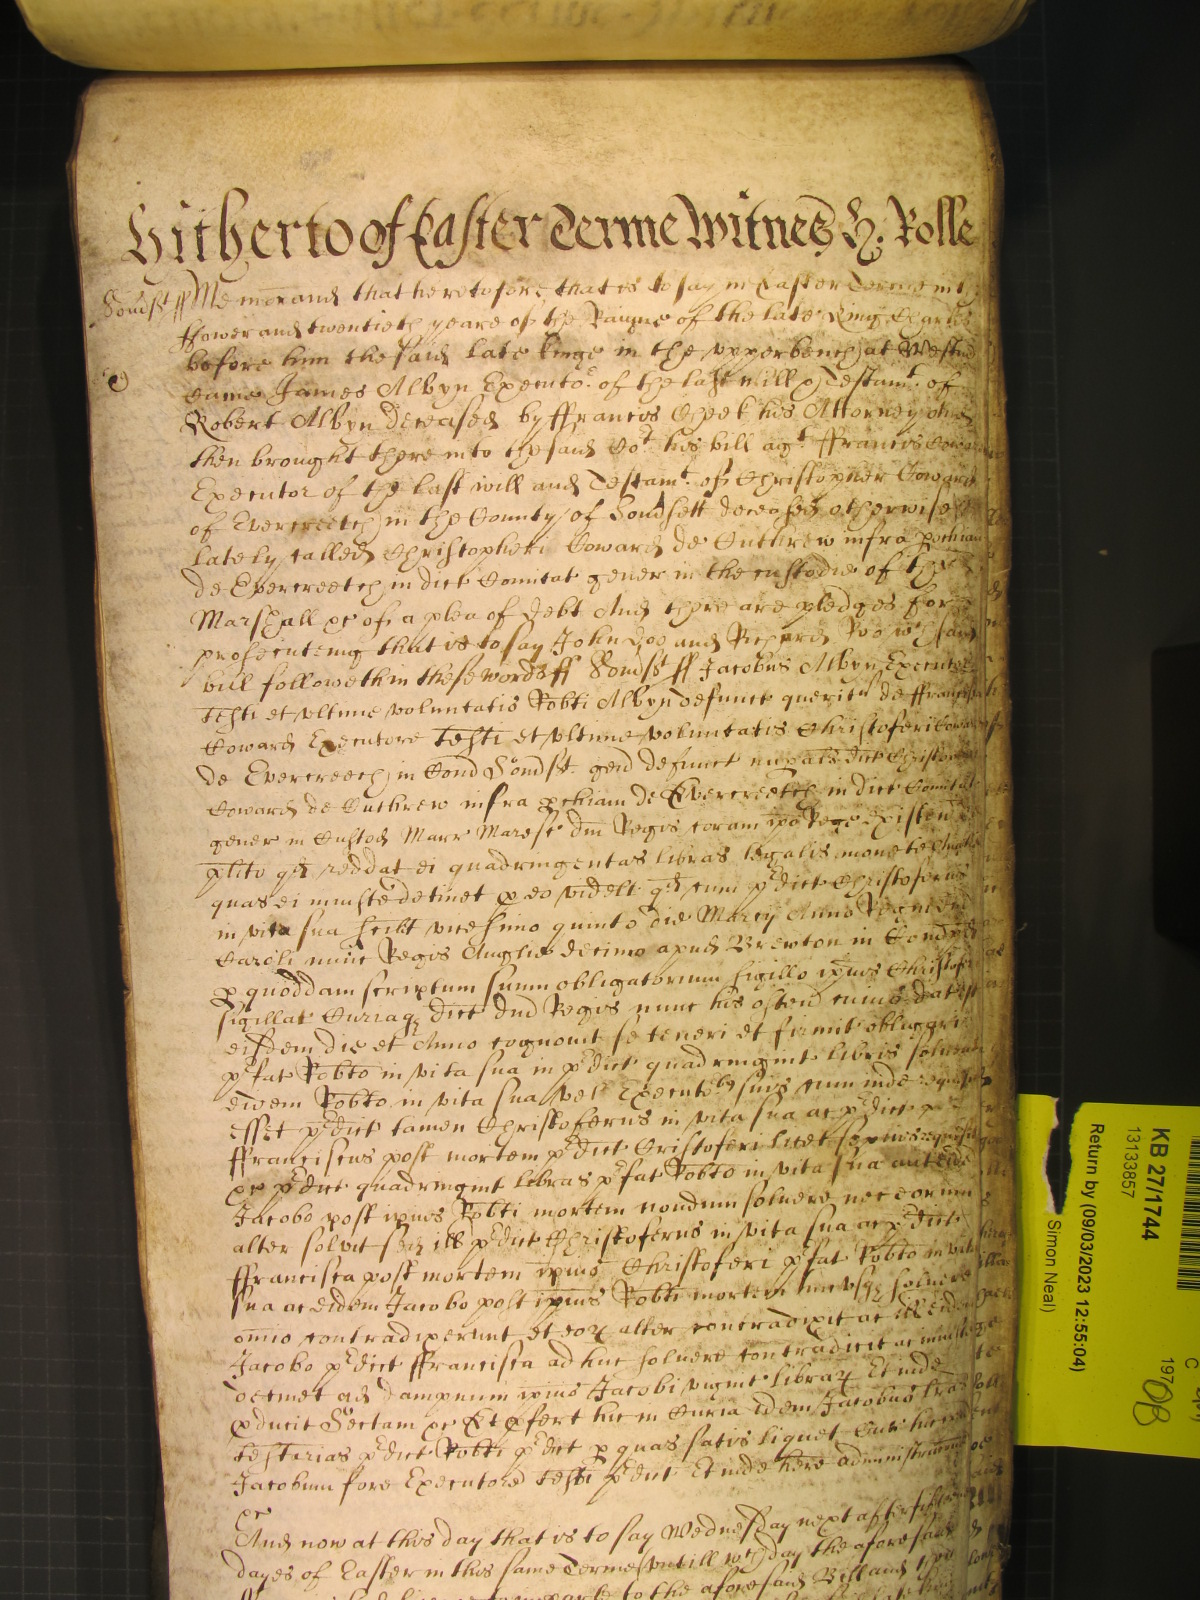 Hitherto of Easter Terme Witnes H: Rolle
Somst ff Memorand that heretofore that is to say in Easter Terme in
ffower and twentieth yeare of the Raigne of the late King Charles
before him the said late Kinge in the upper bench at Westm
came James Albyn Executor of the last will & Testamt of
Robert Albyn deceased by ffrancis Cheek his Attorney and
then brought there into the said Cort his bill agt ffrancis Coward
Executor of the last will and Testamt of Christopher Coward
of Evercreech in the County of Somsett deceased otherwise
lately called Christopheri Coward de Cuthrew infra pochiam
de Evercreech in dict Comitat gener in the custodie of the
Marshall &c of a plea of debt And there are pledges for
prosecuteing that is to say John Doe and Richard Roo wch said
bill followeth in these words ff Somst ff Jacobus Albyn Executor
testi et ultime voluntatis Robti Albyn defunct queritr de ffrancisca
Coward Executore testi et ultime voluntatis Christoferi Coward
de Evercreech in Com Somst gen defunct nup als dict Christoferi
Coward de Cuthrew infra pochiam de Evercreech in dict Comitat
gener in Custod Marr Maresc dni Regis coram ipo Rege existen de
plito qd reddat ei quadringentas libras legalis monete Anglie
quas ei iniuste detinet p eo videlt qd cum pdict Christoferus
in vita sua scilt vicesimo quinto die Marcij Anno Regni dni
Caroli nunc Regis Anglie decimo apud Brewton in Com pd
p quoddam scriptum suum obligatorium sigillo ipius Christoferi
sigillat Curiaq dict dni Regis nunc hic osten cuius dat est
eisdem die et Anno cognovit se teneri et firmit obligari
pfat Robto in vita sua in pdict quadringint libris solvend
eidem Robto in vita sua vel Executoribz suis cum inde requisit
esset pdict tamen Christoferus in vita sua ac pdict
ffrancisca post mortem pdict Cristoferi licet sepius requisit
&c pdict quadringint libras pfat Robto in vita sua aut eidem
Jacobo post ipius Robti mortem nondum solvere nec eorum
alter solvit sed ill pdict Christoferus in vita sua ac pdict
ffrancisca post mortem ipius Christoferi pfat Robto in vita
sua ac eidem Jacobo post ipius Robti mortem hucusq solvere
omnio contradixerunt et eor alter contradixit ac eidem
Jacobo pdict ffrancisca adhuc solvere contradicit ac iniuste
detinet ad dampnum ipius Jacobi vigint librar Et inde
pducit Sectam &c Et pfert hic in Curia idem Jacobus lras
testarias pdict Robti pdict p quas satis liquet Cur hic
Jacobum fore Executore testi pdict Et inde here administracoem
&c
And now at this day that is to say Wednesday next after fifteene
dayes of Easter in this same Terme untill wch day the aforesaid
to the aforesaid Bill and